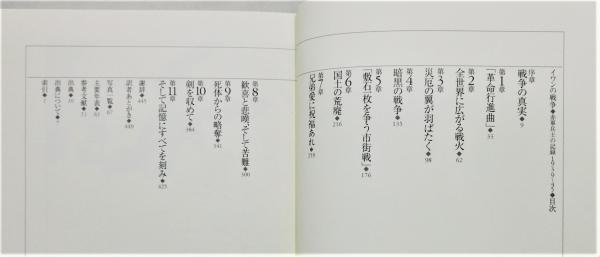 イワンの戦争◆赤軍兵士の記録1939-45◆目次
序章
戦争の真実◆9
第1章
「革命行進曲」◆33
第2章
全世界に広がる戦火◆62
第3章
災厄の翼が羽ばたく◆98
第4章
暗黒の戦争◆133
第5章
「敷石一枚を争う市街戦」◆176
第6章
国土の荒廃◆216
第7章
「兄弟愛に祝福あれ」◆259
第8章
歓喜と悲嘆、そして苦難◆300
第9章
死体からの略奪◆341
第10章
剣を収めて◆384
第11章
そして記憶にすべてを刻み◆425
謝辞◆445
訳者あとがき◆449
写真一覧◆67
主要年表◆63
参考文献◆51
出典◆10
出典について◆7
索引◆1